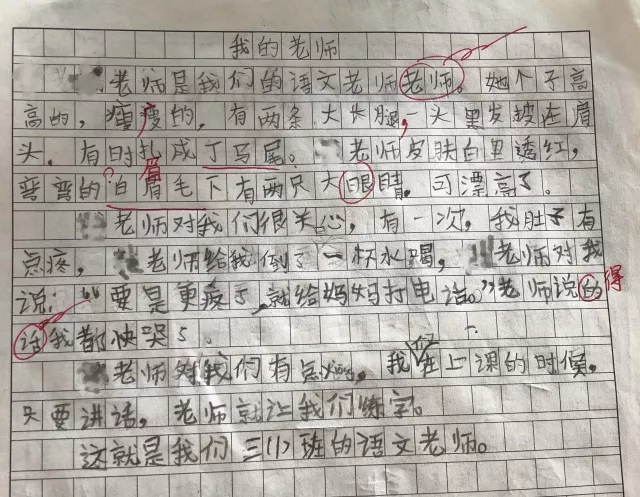 我的老师
老师是我们的语文老师老师。她个子高
高的,瘦瘦的,有两条大长腿,一头黑发披在肩
头。有时扎成丁马尾。老师皮肤白里透红,
弯弯的眉毛下有两只大眼睛。可漂亮了。
老师对我们很关心,有一次,我肚子有
点疼,老师给我倒了一杯水喝,老师对我
说:“要是更疼了,就给妈妈打电话。”老师说的 得
话我都快哭了。
老师对我们有点凶,我们在上课的时候,
只要讲话,老师就让我们练字。
这就是我们三(1)班的语文老师。